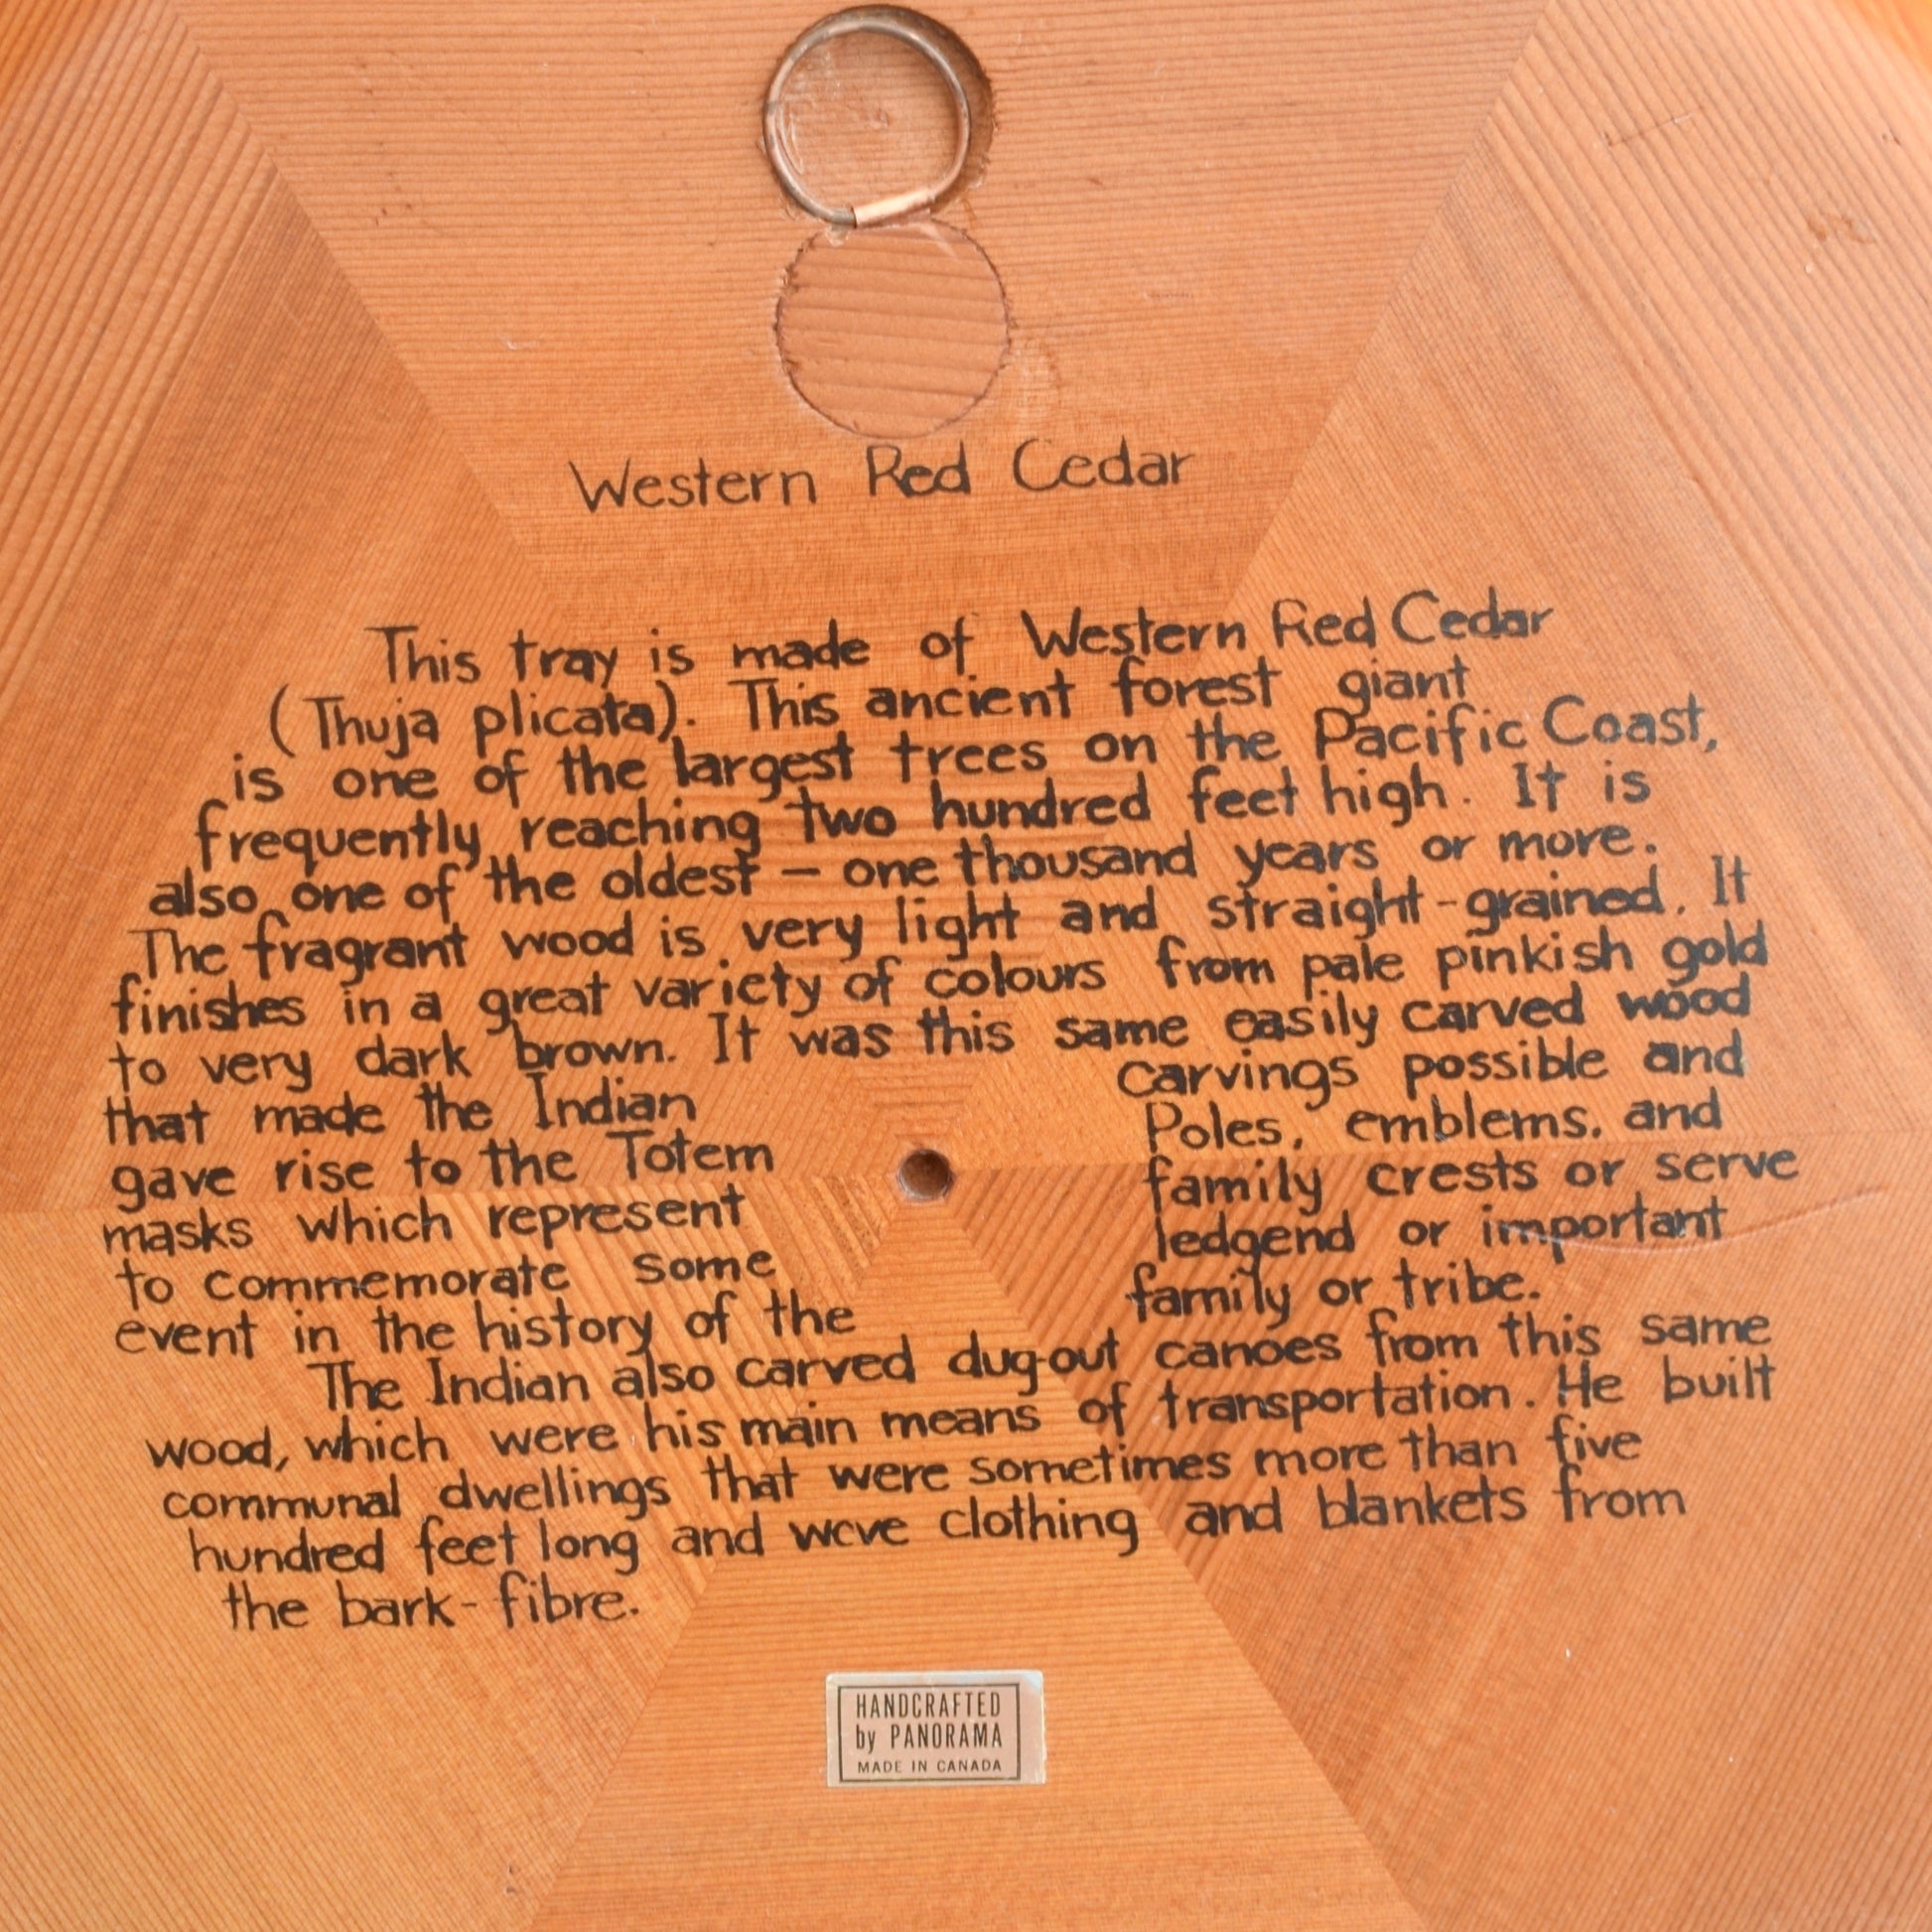 Western Red Cedar
This tray is made of Western Red Cedar
(Thuja plicata). This ancient forest giant
is one of the largest trees on the Pacific Coast,
frequently reaching two hundred feet high. It is
also one of the oldest – one thousand years or more.
The fragrant wood is very light and straight-grained. It
finishes in a great variety of colours from pale pinkish gold
to very dark brown. It was this same easily carved wood
that made the Indian carvings possible and
gave rise to the Totem Poles, emblems, and
masks which represent family crests or serve
to commemorate some ledgend or important
event in the history of the family or tribe.
The Indian also carved dug-out canoes from this same
wood, which were his main means of transportation. He built
communal dwellings that were sometimes more than five
hundred feet long and wove clothing and blankets from
the bark-fibre.
HANDCRAFTED
by PANORAMA
MADE IN CANADA